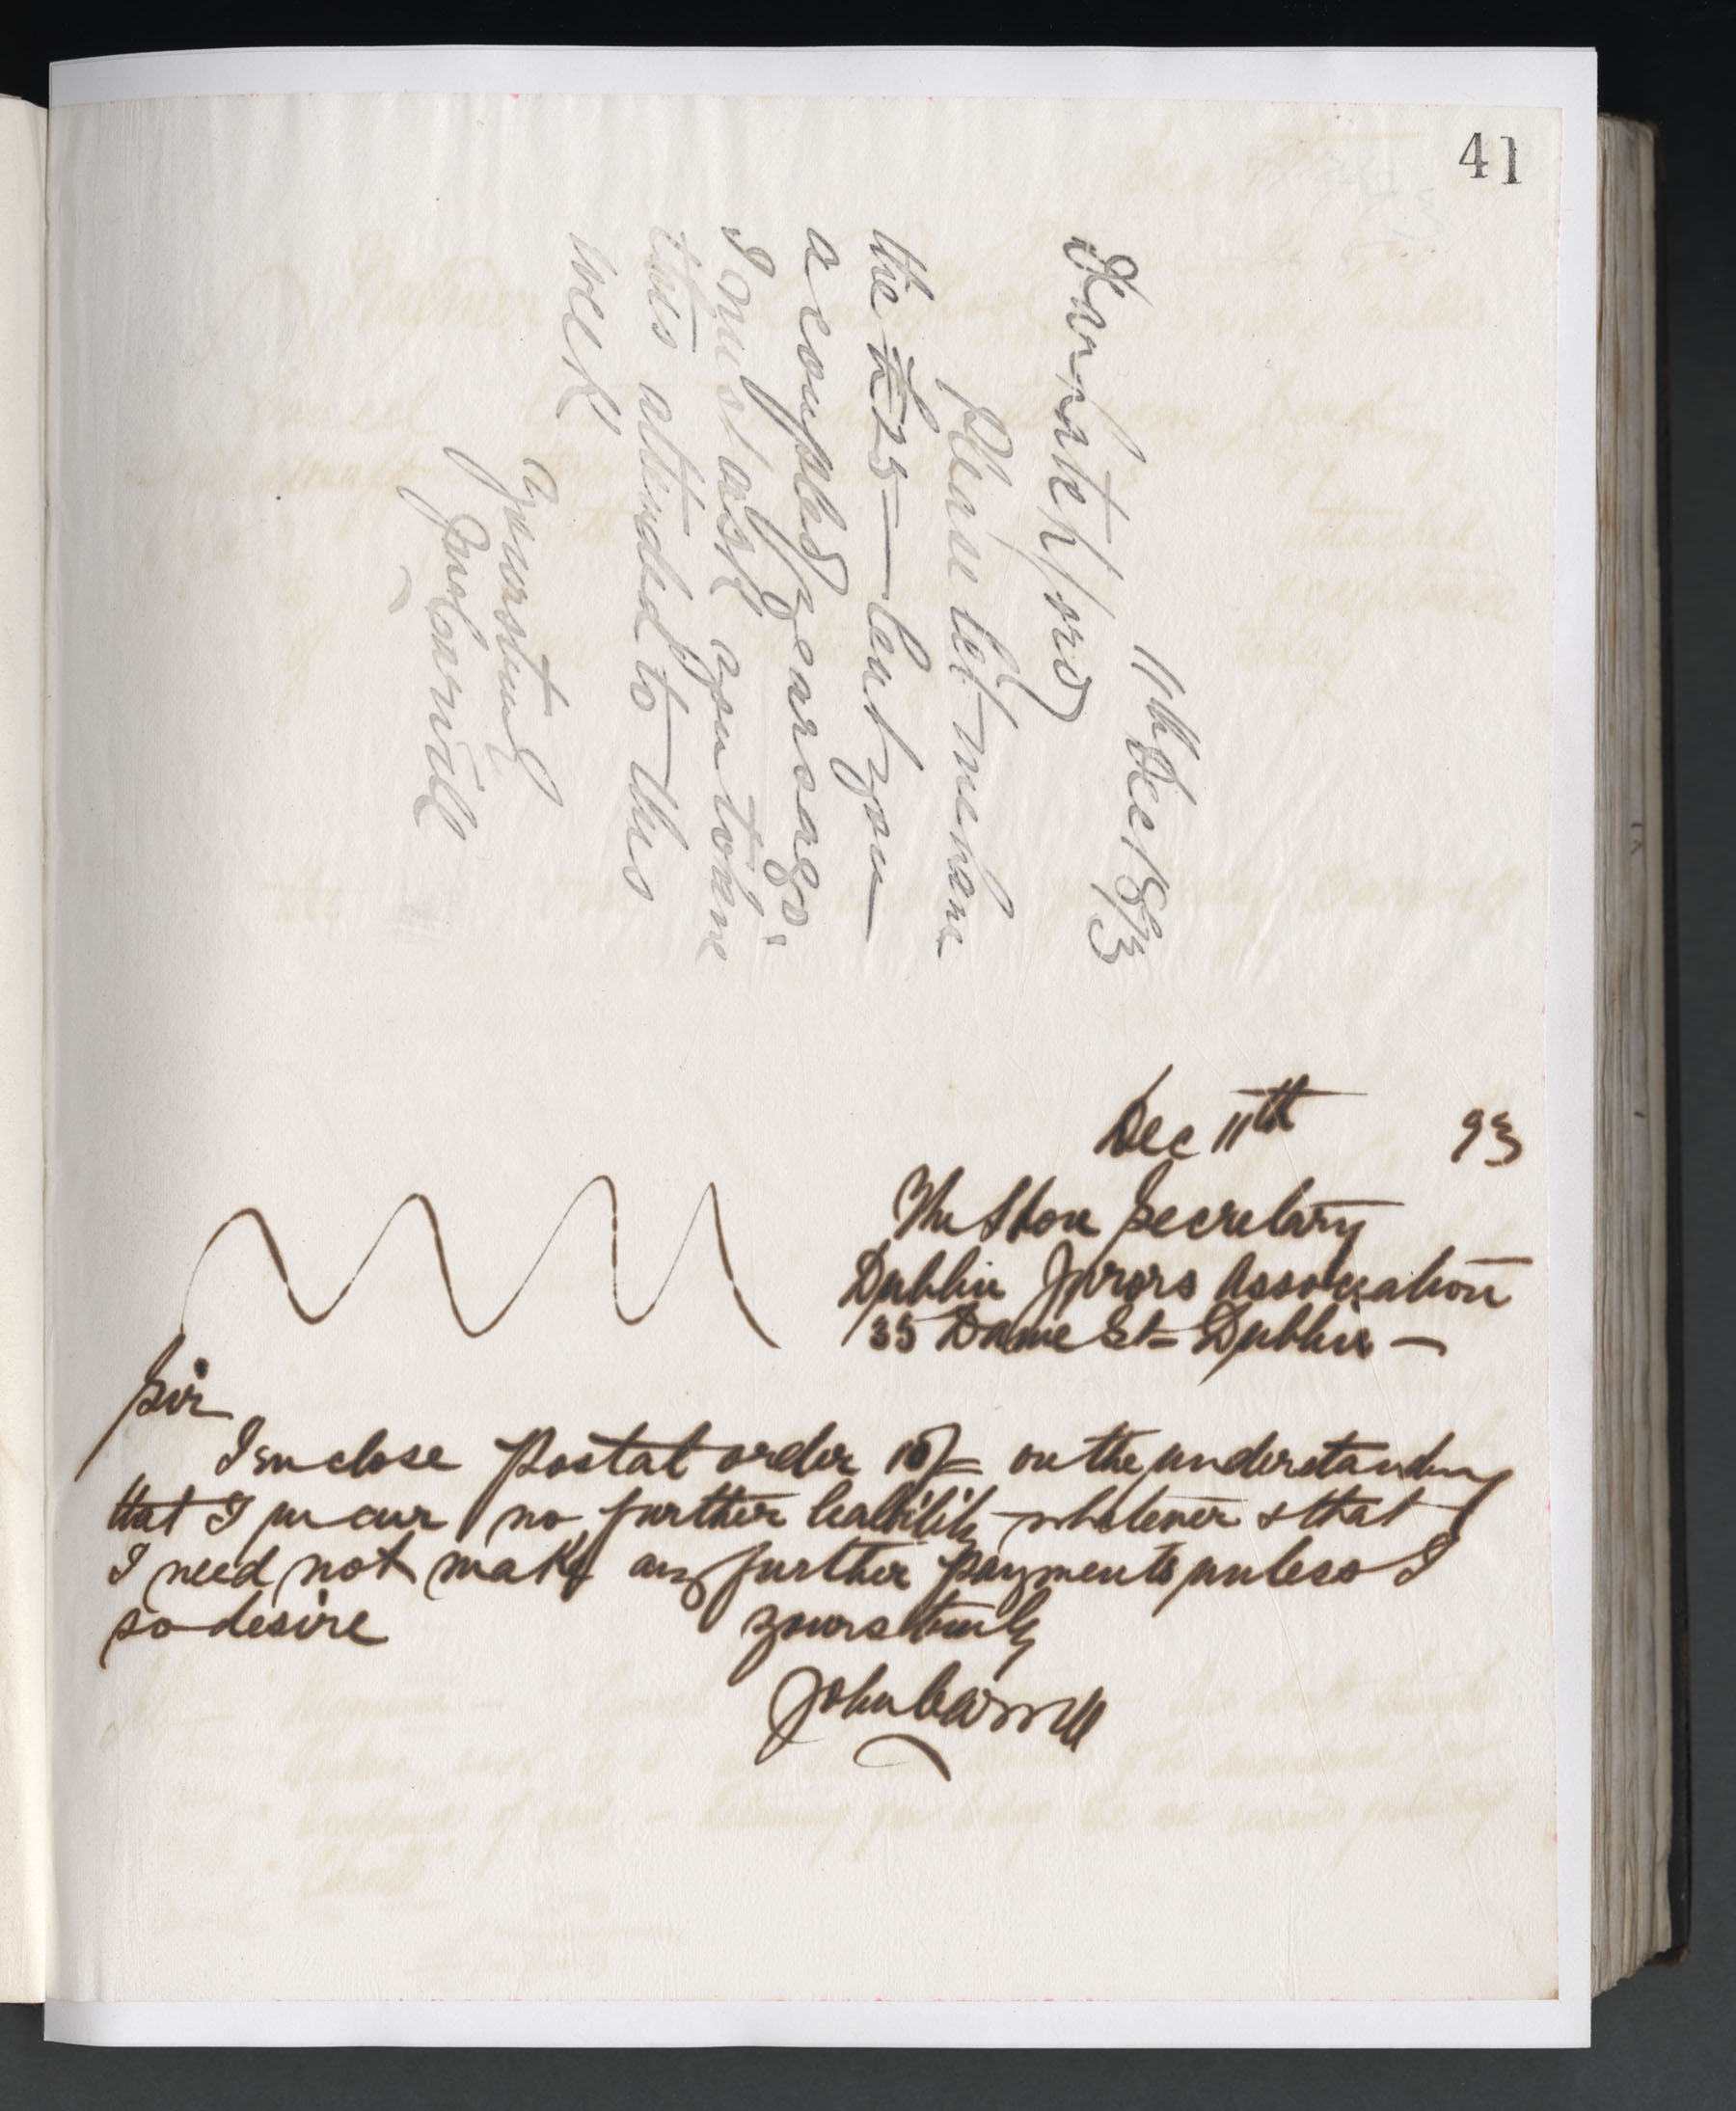 41
11th Dec 1893
Please let me have
the £25 — lent you
a couple of years ago.
I must ask you to have
this attended to this
week
Yours truly
Jno Carvill
Dec 11th 93
The Hon Secretary
Dublin Jurors Association
35 Dame St - Dublin -
Sir
I enclose Postal order 10/= on the understanding
that I incur no further liability whatever & that
I need not make any further payments unless I
so desire yours truly
John Carvill